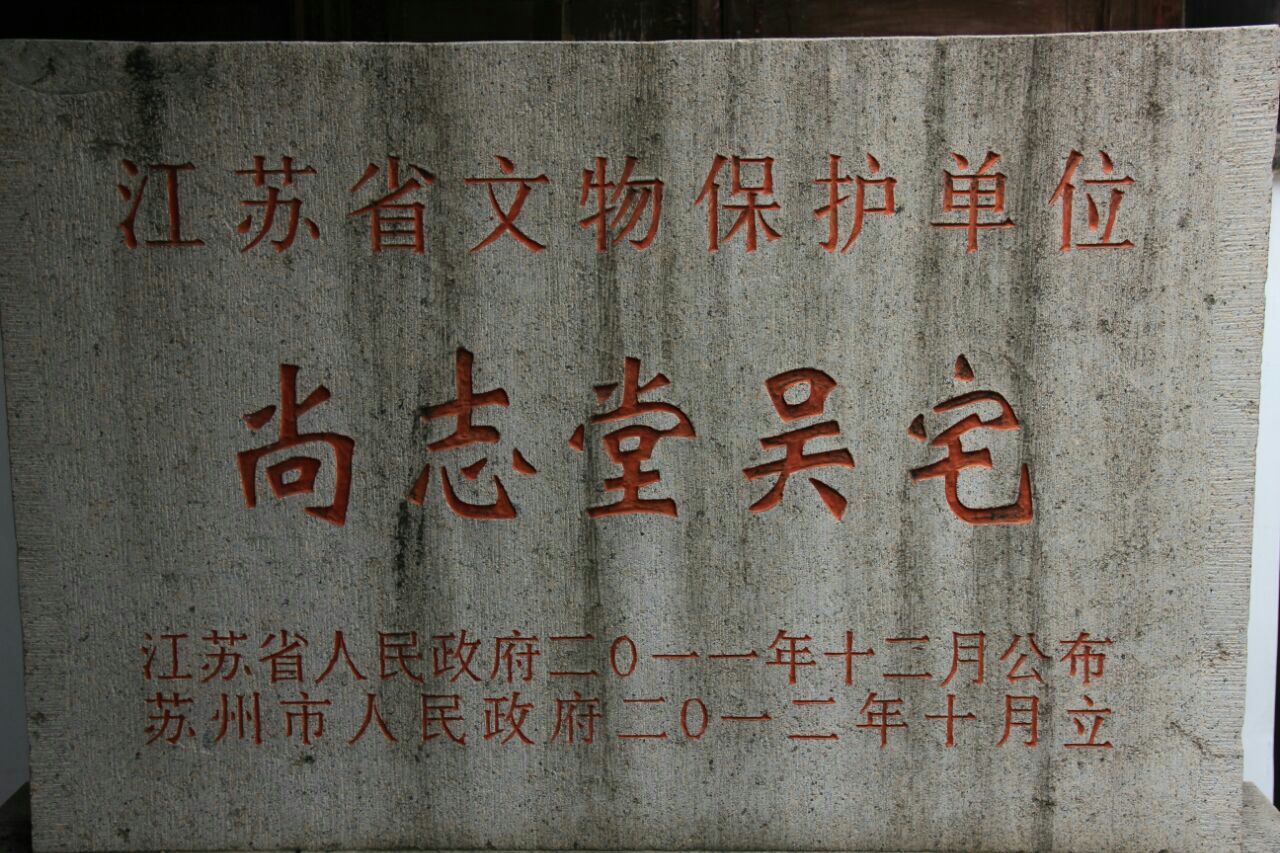 江苏省文物保护单位
尚志堂吴宅
江苏省人民政府二〇一一年十二月公布
苏州市人民政府二〇一二年十月立